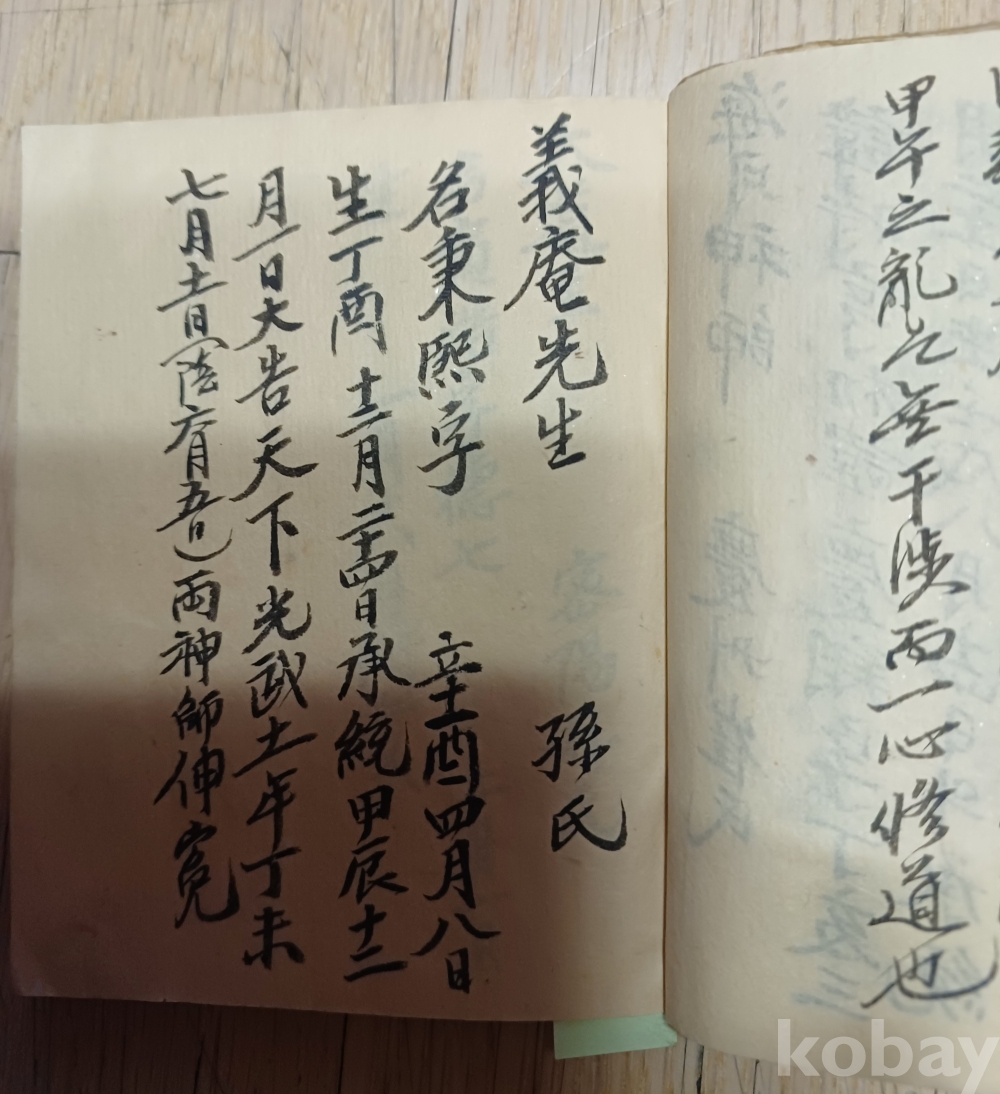 甲午之亂之無干涉而一心修道也
義庵先生 孫氏
名秉熙字 辛酉四月八日
生丁酉十二月二十四日承統甲辰十二
月一日大告天下光武十一年丁未
七月十一日(陰六月五日)兩神師伸寃
kobay